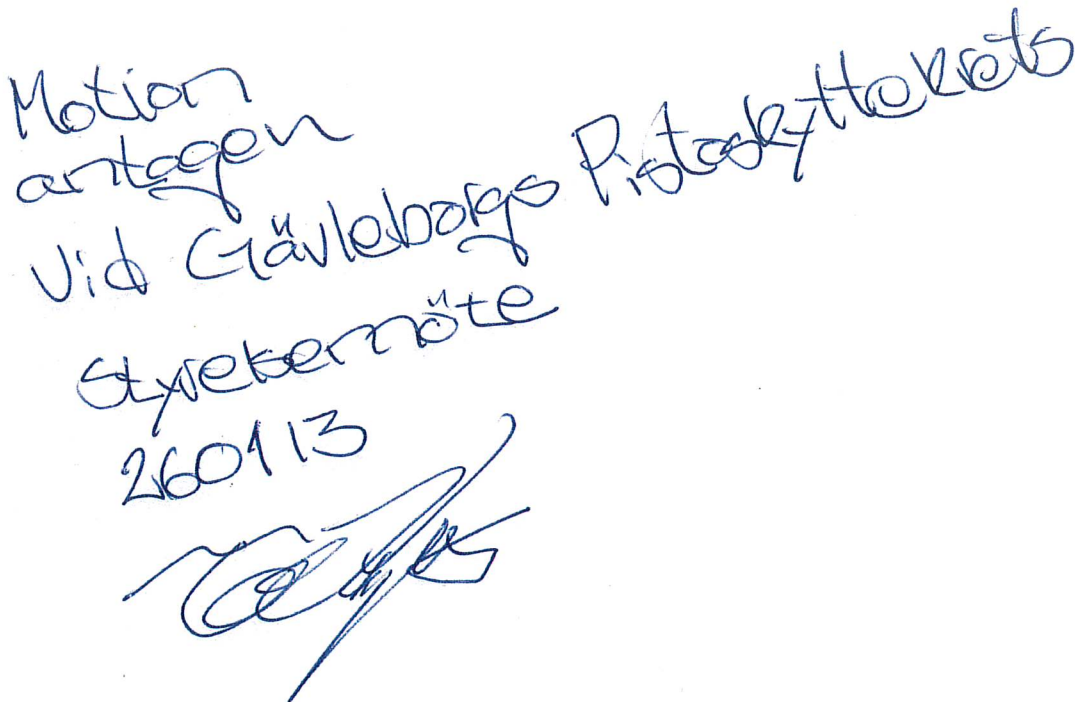 Motion
antagen
Vid Gävleborgs Pistoskyttekrets
Styrelsemöte
260113